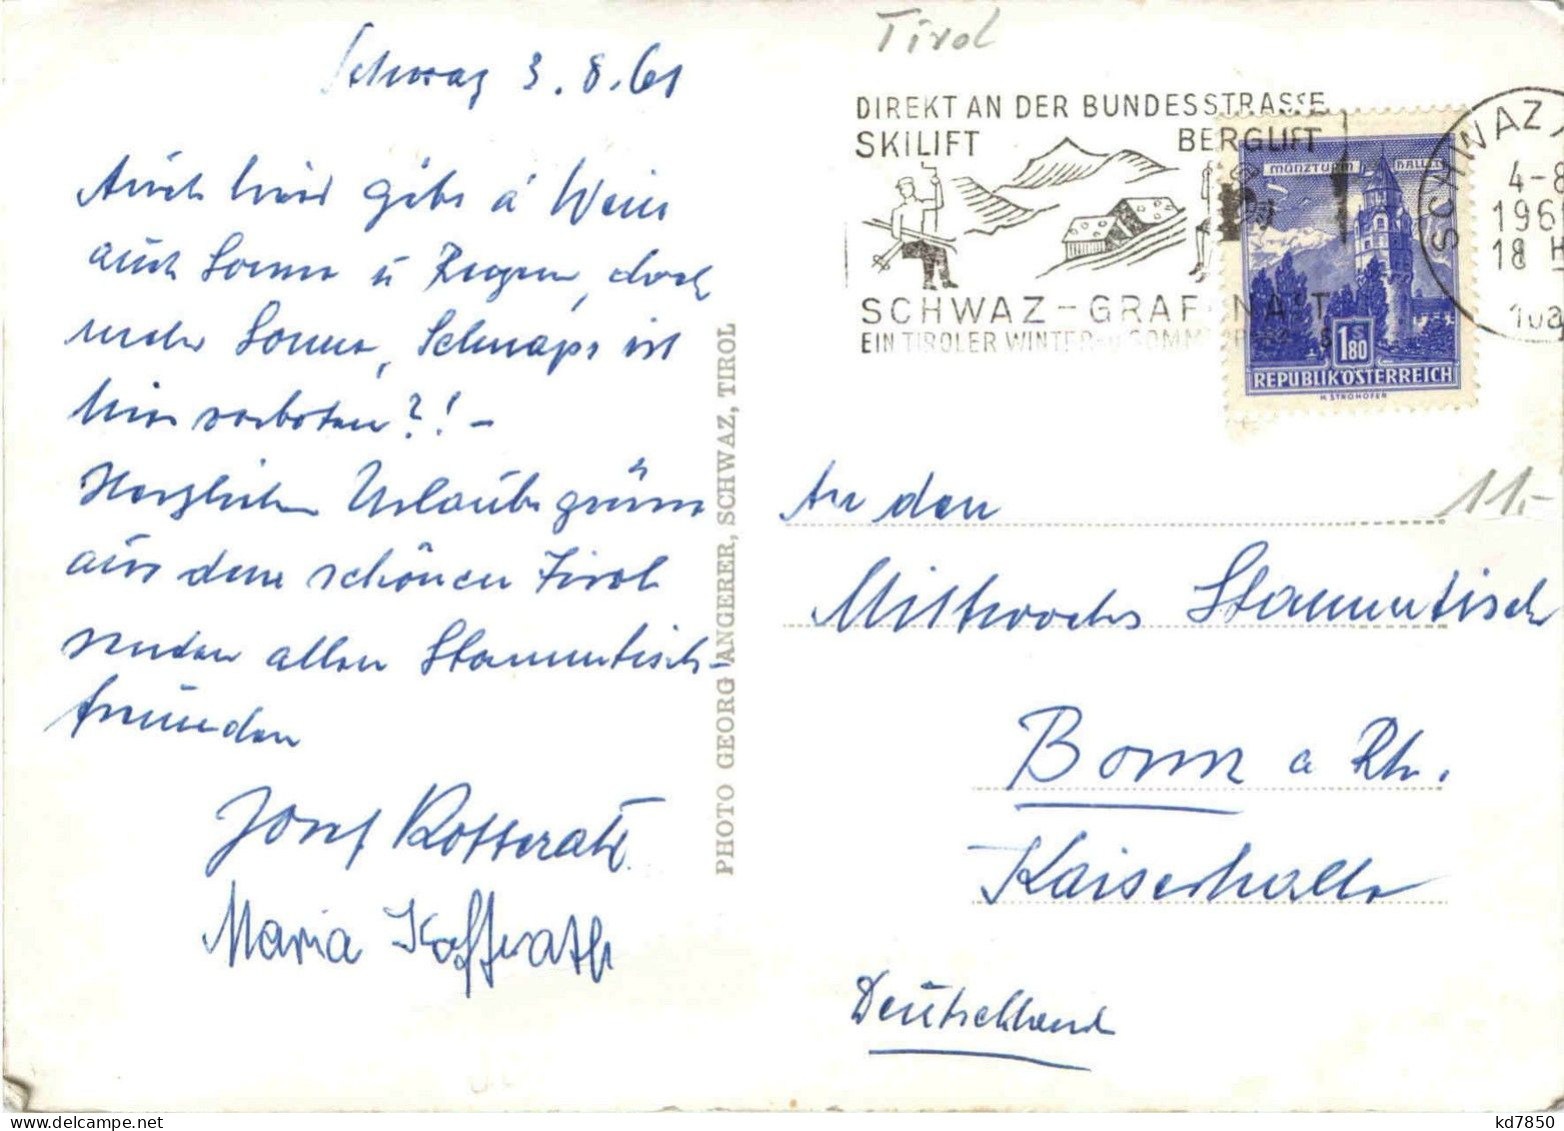 Tirol
Schwaz 3.8.61
Auch hier gibs a Wein
auch Sonne u Regen, doch
mehr Sonne, Schnaps ist
hier verboten?! -
Herzlichen Urlaubsgrüsse
aus dem schönen Tirol
senden allen Stammtisch-
freunden
Josef
Maria
PHOTO GEORG ANGERER, SCHWAZ, TIROL
DIREKT AN DER BUNDESSTRASSE
SKILIFT BERGLIFT
SCHWAZ-GRAFENAST
EIN TIROLER WINTER-U SOMM
SCHWAZ
4-8
196
18 H
MÜNZTURM HALL
1.80
REPUBLIK ÖSTERREICH
H. STROHOFER
11.-
An den
Mittwochs Stammtisch
Bonn a Rh.
Kaiserhalle
Deutschland
kd7850